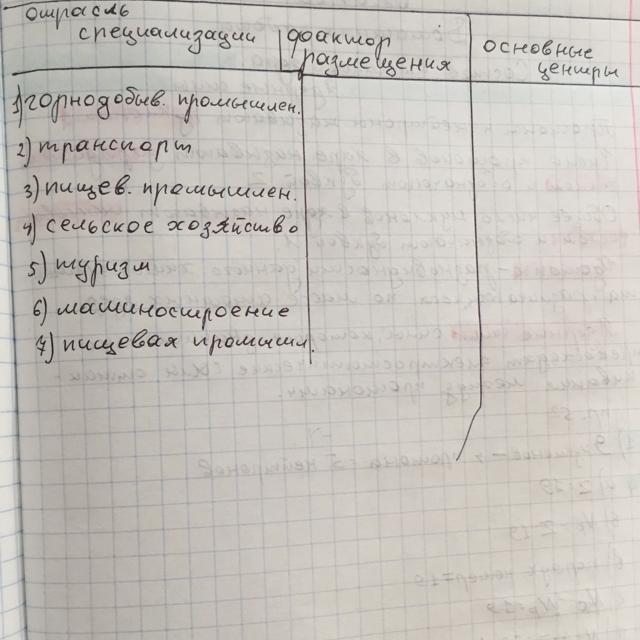 отрасль
специализации
фоактор
размещения
основные
центры
1) горнодобыв. промышлен.
2) транспорт
3) пищев. промышлен.
4) сельское хозяйство
5) туризм
6) машиностроение
7) пищевая промышл.